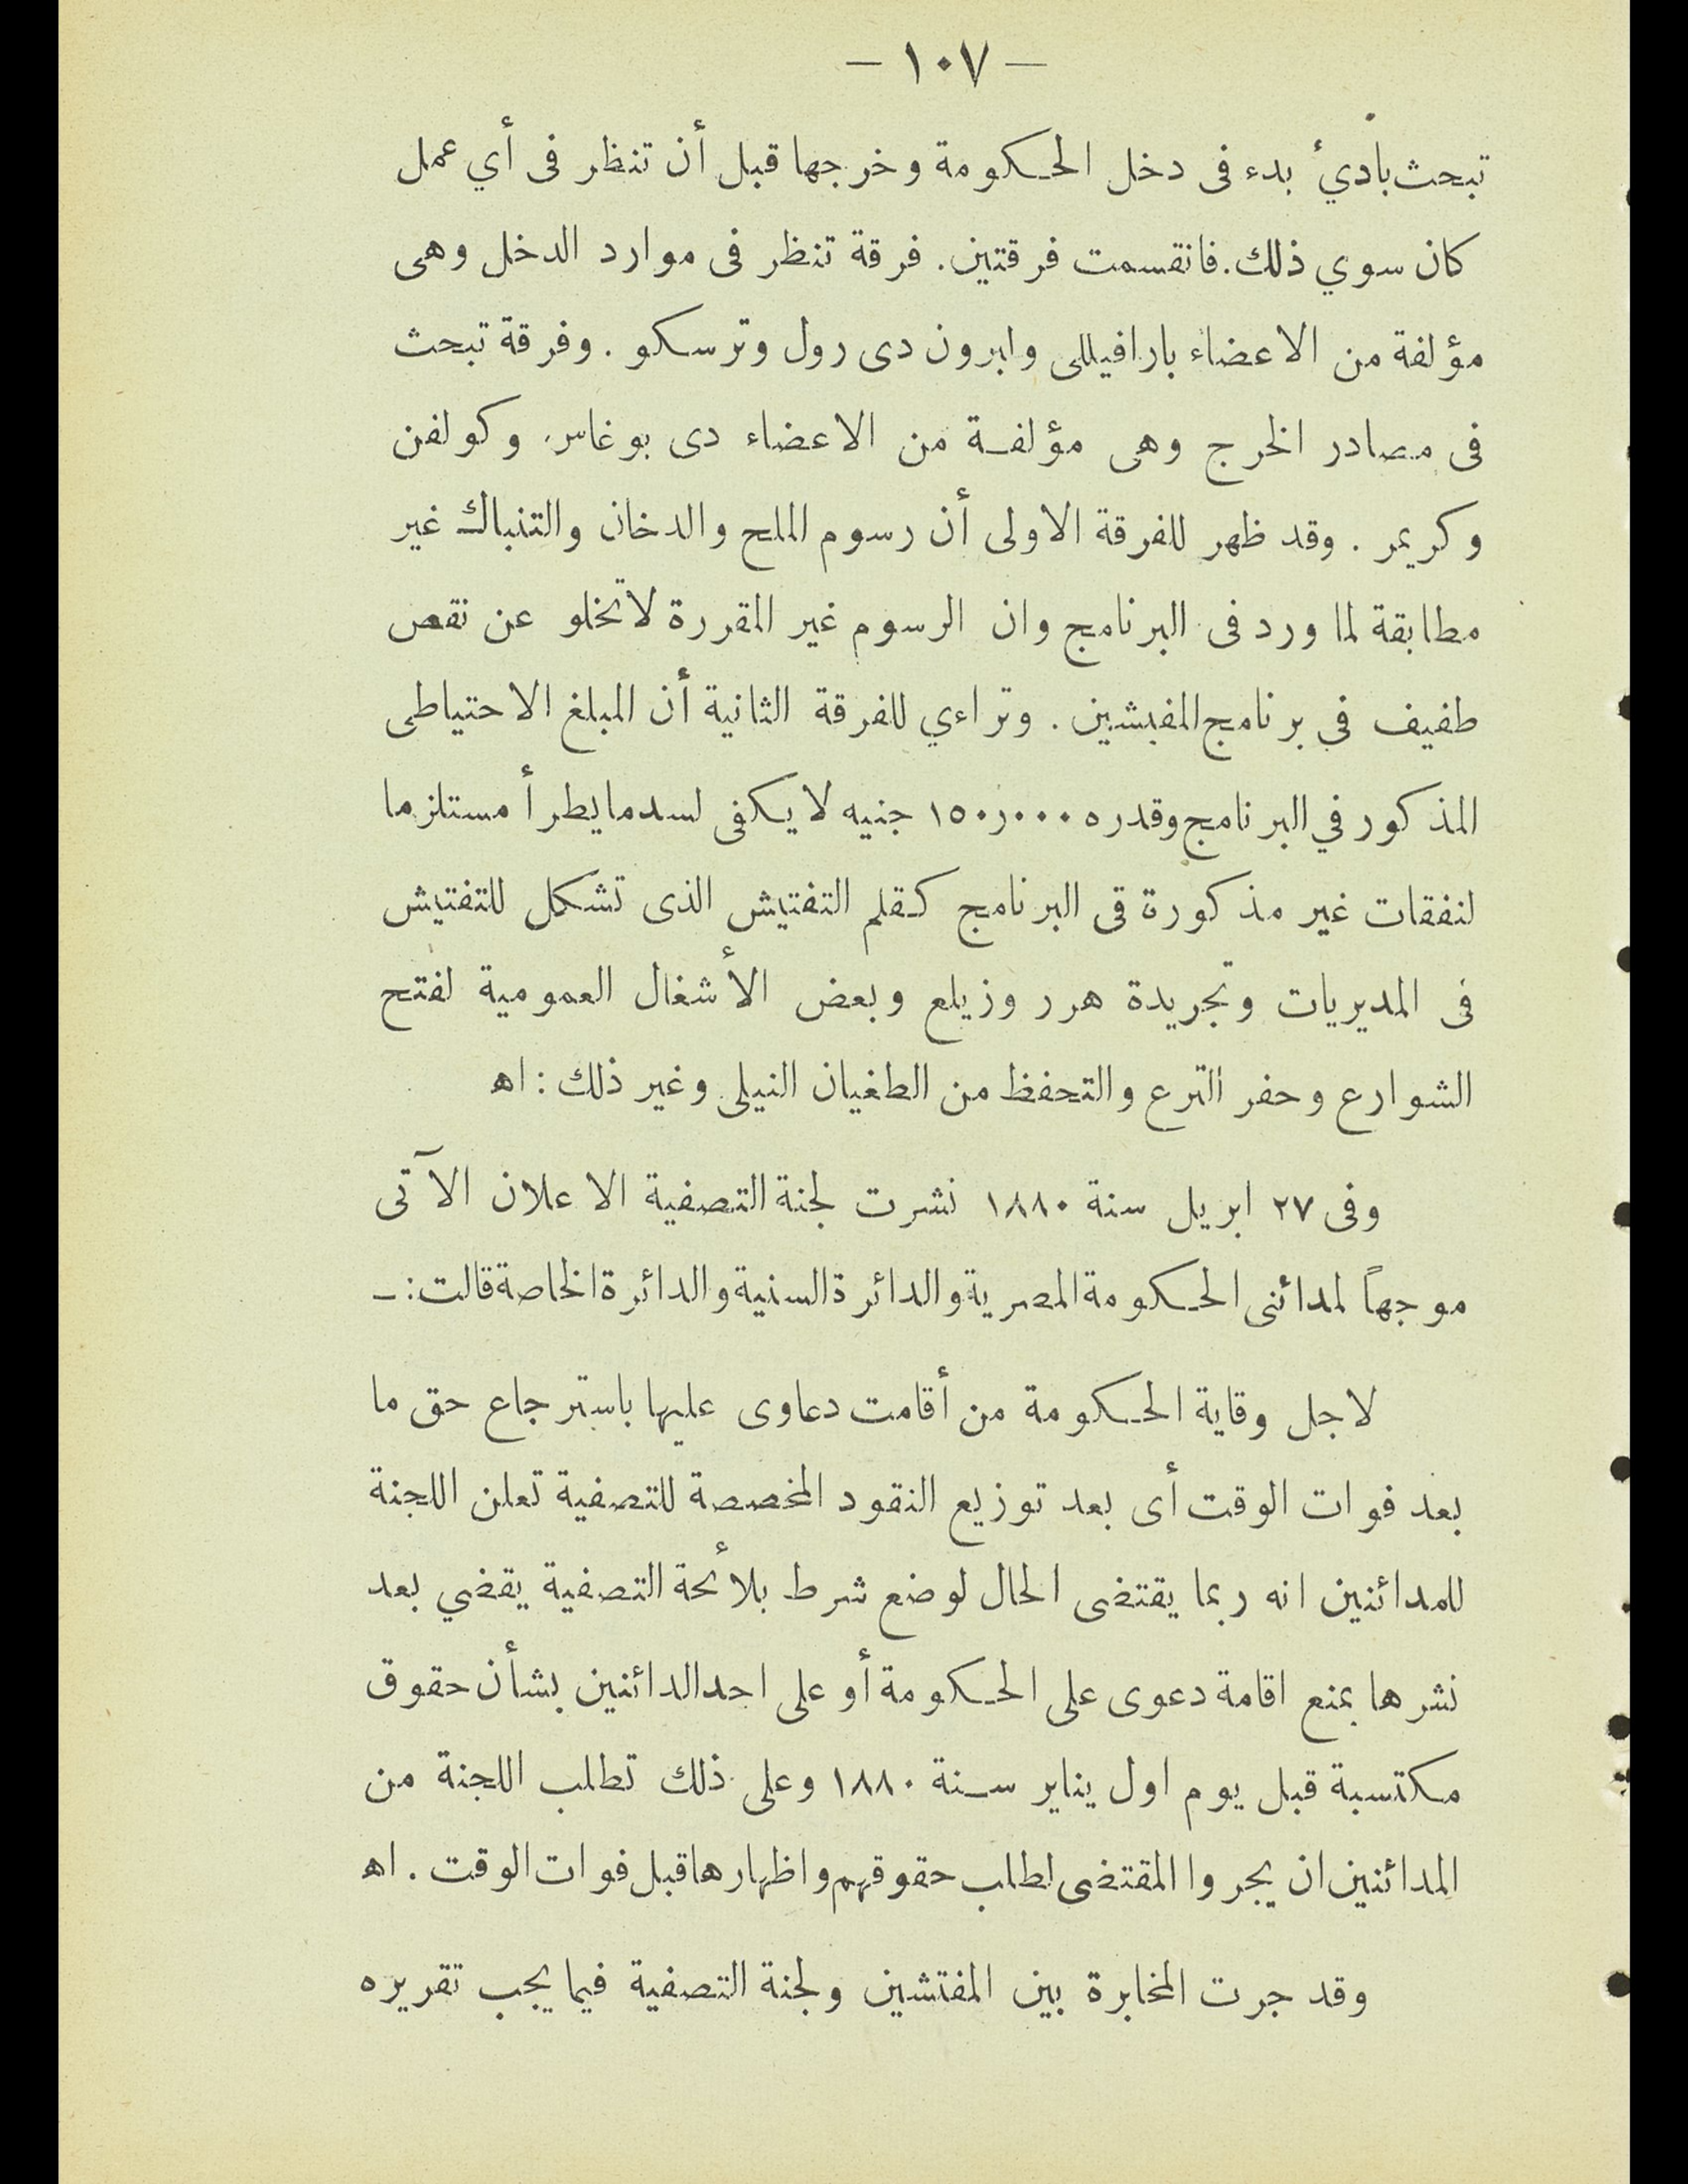 — ١٠٧ —
تبحث بادئ بدء فى دخل الحكومة وخرجها قبل أن تنظر فى أي عمل
كان سوي ذلك. فانقسمت فرقتين. فرقة تنظر فى موارد الدخل وهى
مؤلفة من الاعضاء بارافيللى وابرون دى رول وترسكو. وفرقة تبحث
فى مصادر الخرج وهى مؤلفة من الاعضاء دى بوغاس وكولفن
وكريمر. وقد ظهر للفرقة الاولى أن رسوم الملح والدخان والتنباك غير
مطابقة لما ورد فى البرنامج وان الرسوم غير المقررة لا تخلو عن نقص
طفيف فى برنامج المفبشين. وتراءي للفرقة الثانية أن المبلغ الاحتياطى
المذكور في البرنامج وقدره ١٥٠ر٠٠٠ جنيه لا يكفى لسد ما يطرأ مستلزما
لنفقات غير مذكورة فى البرنامج كقلم التفتيش الذى تشكل للتفتيش
فى المديريات وتجريدة هرر وزيلع وبعض الأشغال العمومية لفتح
الشوارع وحفر الترع والتحفظ من الطغيان النيلى وغير ذلك: اه
وفى ٢٧ ابريل سنة ١٨٨٠ نشرت لجنة التصفية الاعلان الآتى
موجهاً لمدائنى الحكومة المصرية والدائرة السنية والدائرة الخاصة قالت: ـ
لاجل وقاية الحكومة من أقامت دعاوى عليها باسترجاع حق ما
بعد فوات الوقت أى بعد توزيع النقود المخصصة للتصفية تعلن اللجنة
للمدائنين انه ربما يقتضى الحال لوضع شرط بلائحة التصفية يقضي بعد
نشرها بمنع اقامة دعوى على الحكومة أو على احد الدائنين بشأن حقوق
مكتسبة قبل يوم اول يناير سنة ١٨٨٠ وعلى ذلك تطلب اللجنة من
المدائنين ان يجروا المقتضى لطلب حقوقهم واظهارها قبل فوات الوقت. اه
وقد جرت المخابرة بين المفتشين ولجنة التصفية فيما يجب تقريره